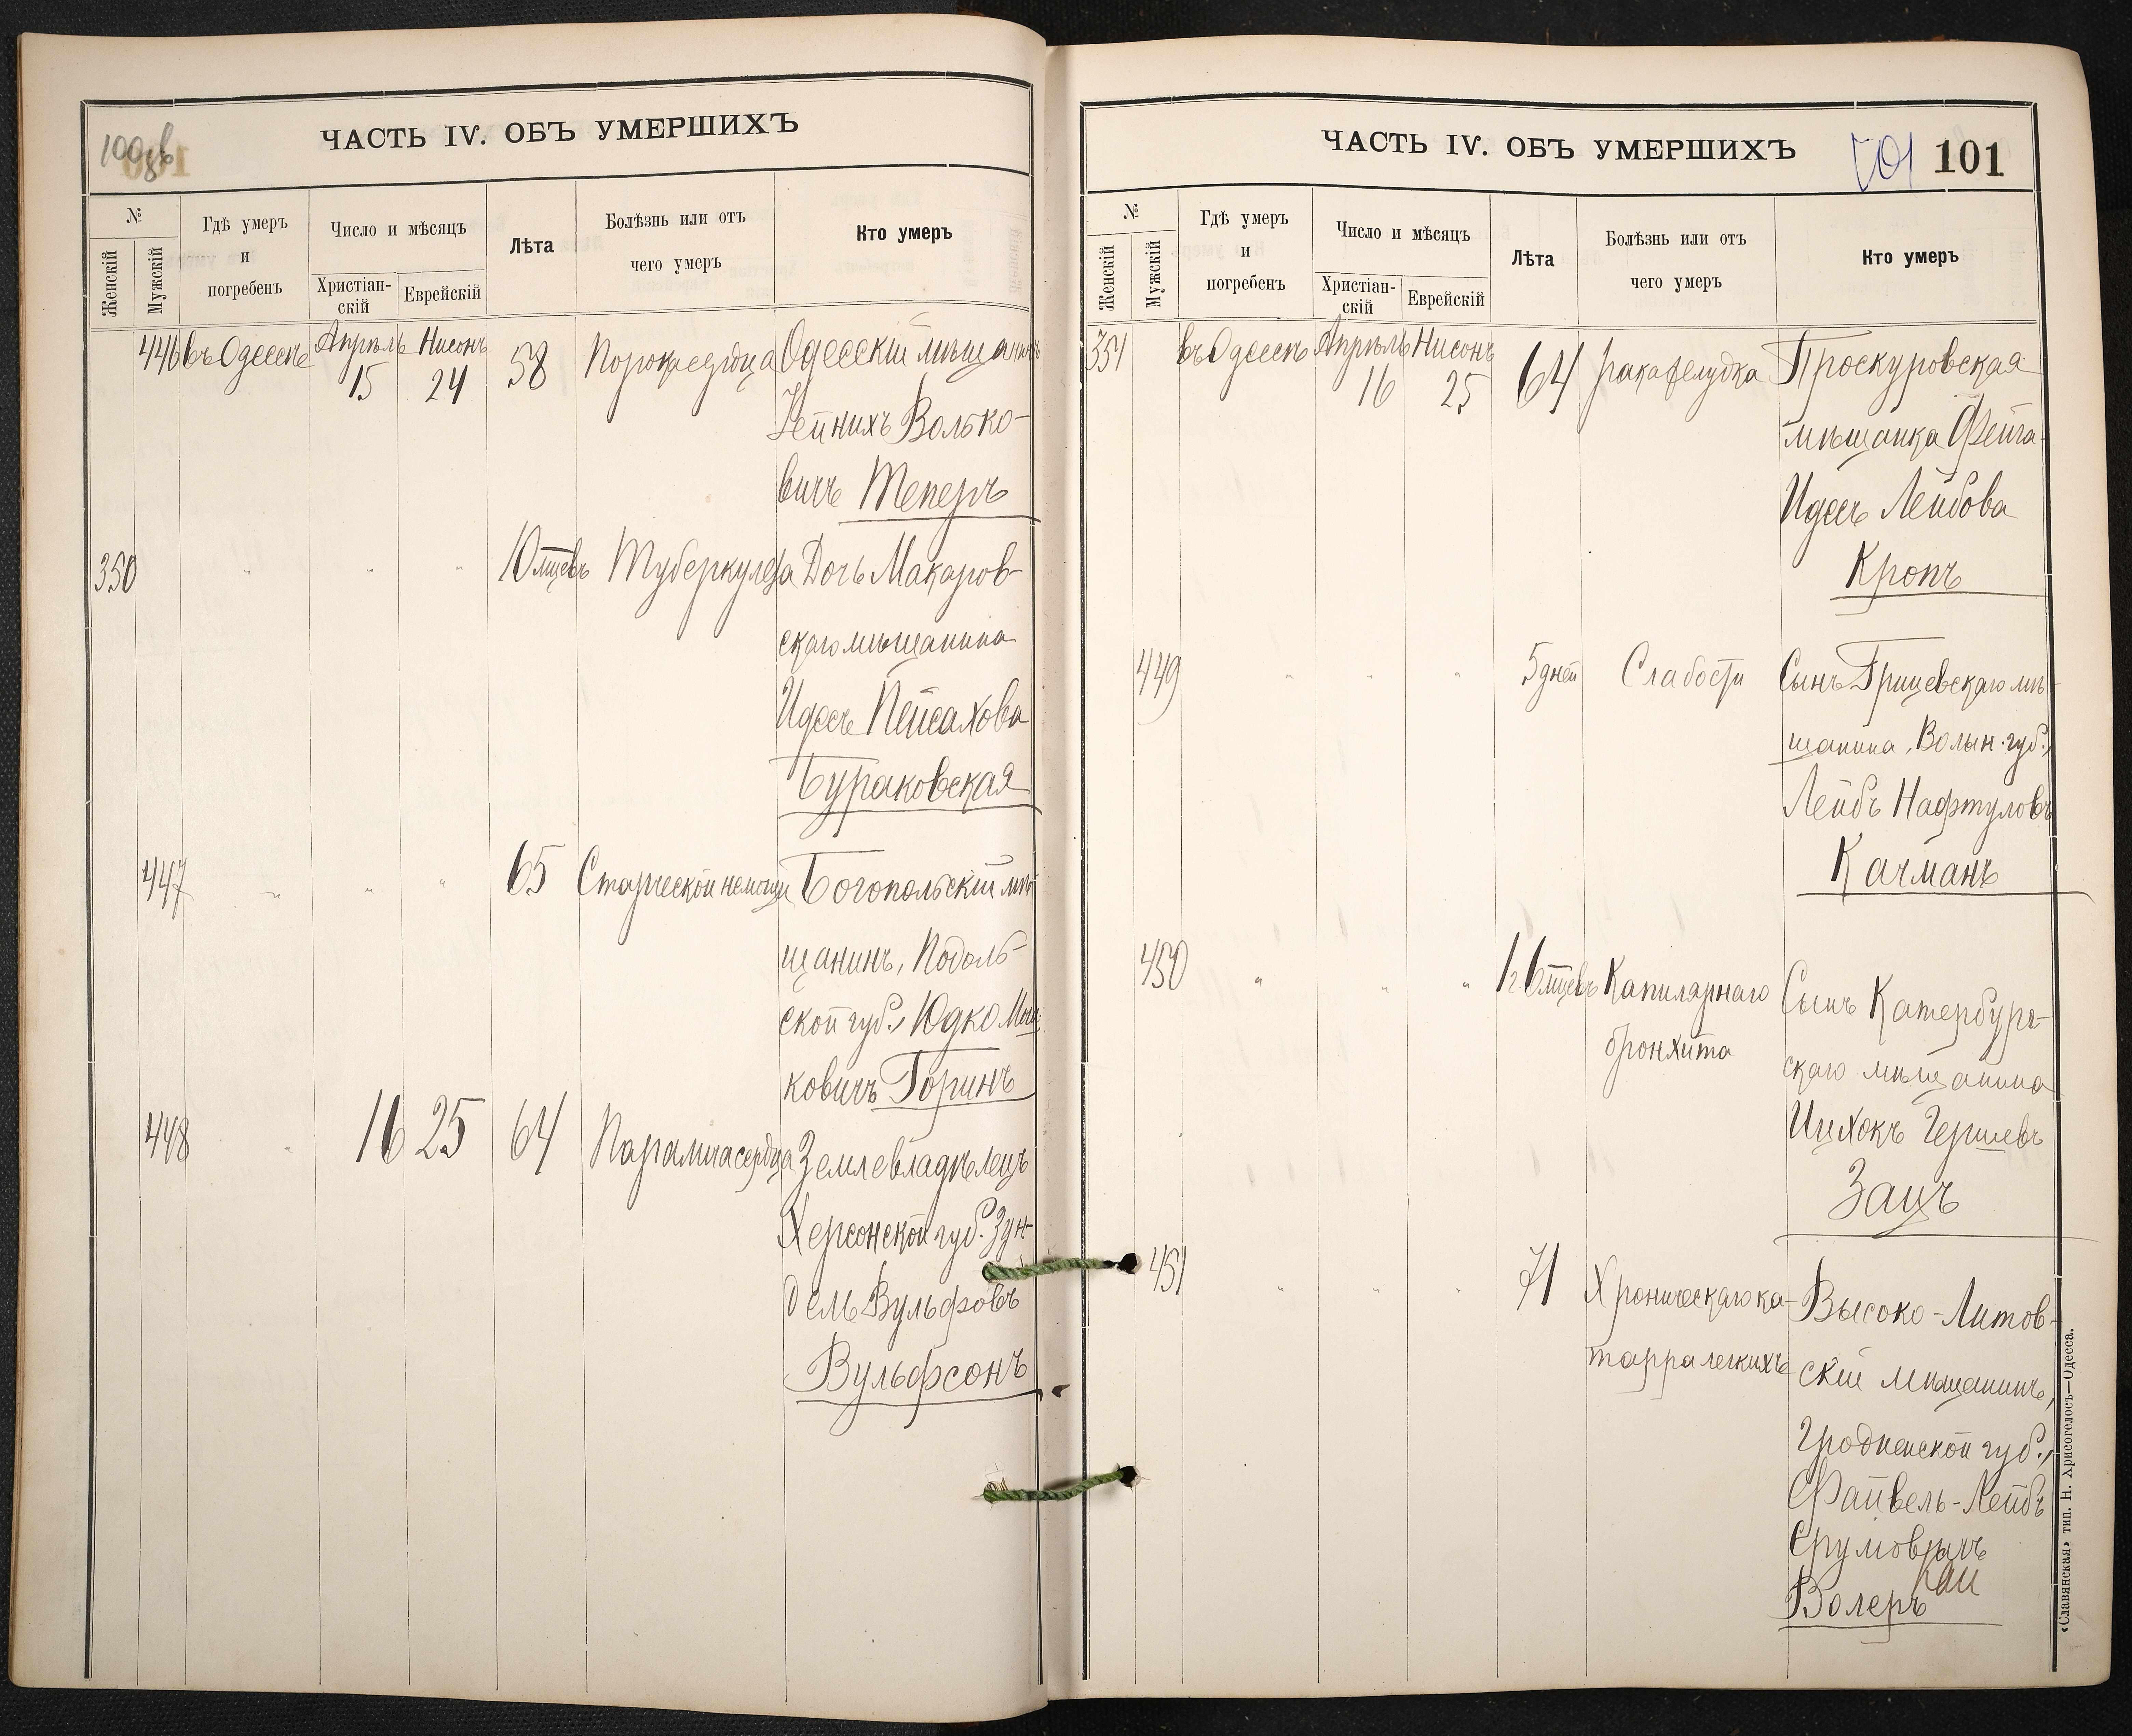 ЧАСТЬ IV. ОБЪ УМЕРШИХЪ
№
Женскій
Мужскій
Гдѣ умеръ
и
погребенъ
Число и мѣсяцъ
Христіан-
скій
Еврейскій
Лѣта
Болѣзнь или отъ
чего умеръ
Кто умеръ
446 въ Одессѣ Апрѣль 15 Нисонъ 24 58 Порока сердца Одесскій мѣщанинъ
Волько-
вичъ Теперъ
350 " " " 10 мцевъ Туберкулеза Дочь Макаров-
скаго мѣщанина
Идесъ Пейсахова
Бураковская
447 " " " 65 Старческой немощи Богопольскій мѣ-
щанинъ, Подоль-
ской губ., Юдко Мош-
ковичъ Горинъ
448 " 16 25 64 Паралича сердца Землевладѣлецъ
Херсонской губ. Зун-
дель Вульфовъ
Вульфсонъ
ЧАСТЬ IV. ОБЪ УМЕРШИХЪ
101
№
Женскій
Мужскій
Гдѣ умеръ
и
погребенъ
Число и мѣсяцъ
Христіан-
скій
Еврейскій
Лѣта
Болѣзнь или отъ
чего умеръ
Кто умеръ
351 въ Одессѣ Апрѣль 16 Нисонъ 25 64 рака желудка Проскуровская
мѣщанка Фейга-
Идесъ Лейбова
Кропъ
449 " " " 5 дней Слабости Сынъ Грицевскаго мѣ-
щанина, Волын. губ.,
Лейбъ Нафтуловъ
Качманъ
450 " " " 1 г. 6 мцевъ Капилярнаго Сынъ Катербург-
бронхита
скаго мѣщанина
Ицхокъ Гершевъ
Зацъ
451 " " " 71 Хроническаго ка- Высоко-Литов-
тарра легкихъ
скій мѣщанинъ,
Гродненской губ.,
Файвель-Лейбъ
Срумовичъ
Волеръ
«Славянская» тип. Н. Хрисогелосъ—Одесса.